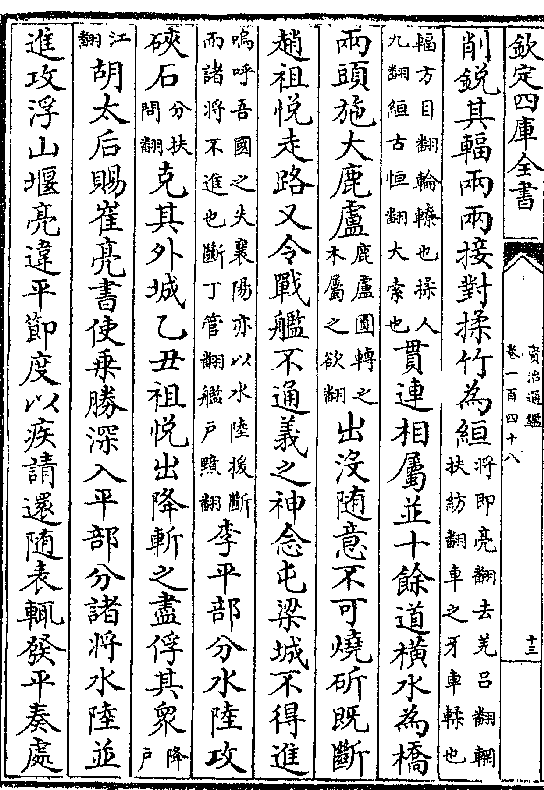 欽定四庫全書
資治通鑑
卷一百四十八
十三
削銳其輻兩兩接對揉竹為絙將即亮翻去羌呂翻輞扶紡翻車之牙車輮也
輻方目翻輪轑也揉人九翻絙古恒翻大索也貫連相屬並十餘道橫水為橋
兩頭施大鹿盧鹿盧圓轉之木屬之欲翻出没随意不可燒斫既斷
趙祖悅走路又令戰艦不通義之神念屯梁城不得進
嗚呼吾國之失襄陽亦以水陸援斷而諸將不進也斷丁管翻艦戶黯翻李平部分水陸攻
硤石分扶問翻克其外城乙丑祖悅出降斬之盡俘其衆降戶
江翻胡太后賜崔亮書使乗勝深入平部分諸將水陸並
進攻浮山堰亮違平節度以疾請還随表輒發平奏處